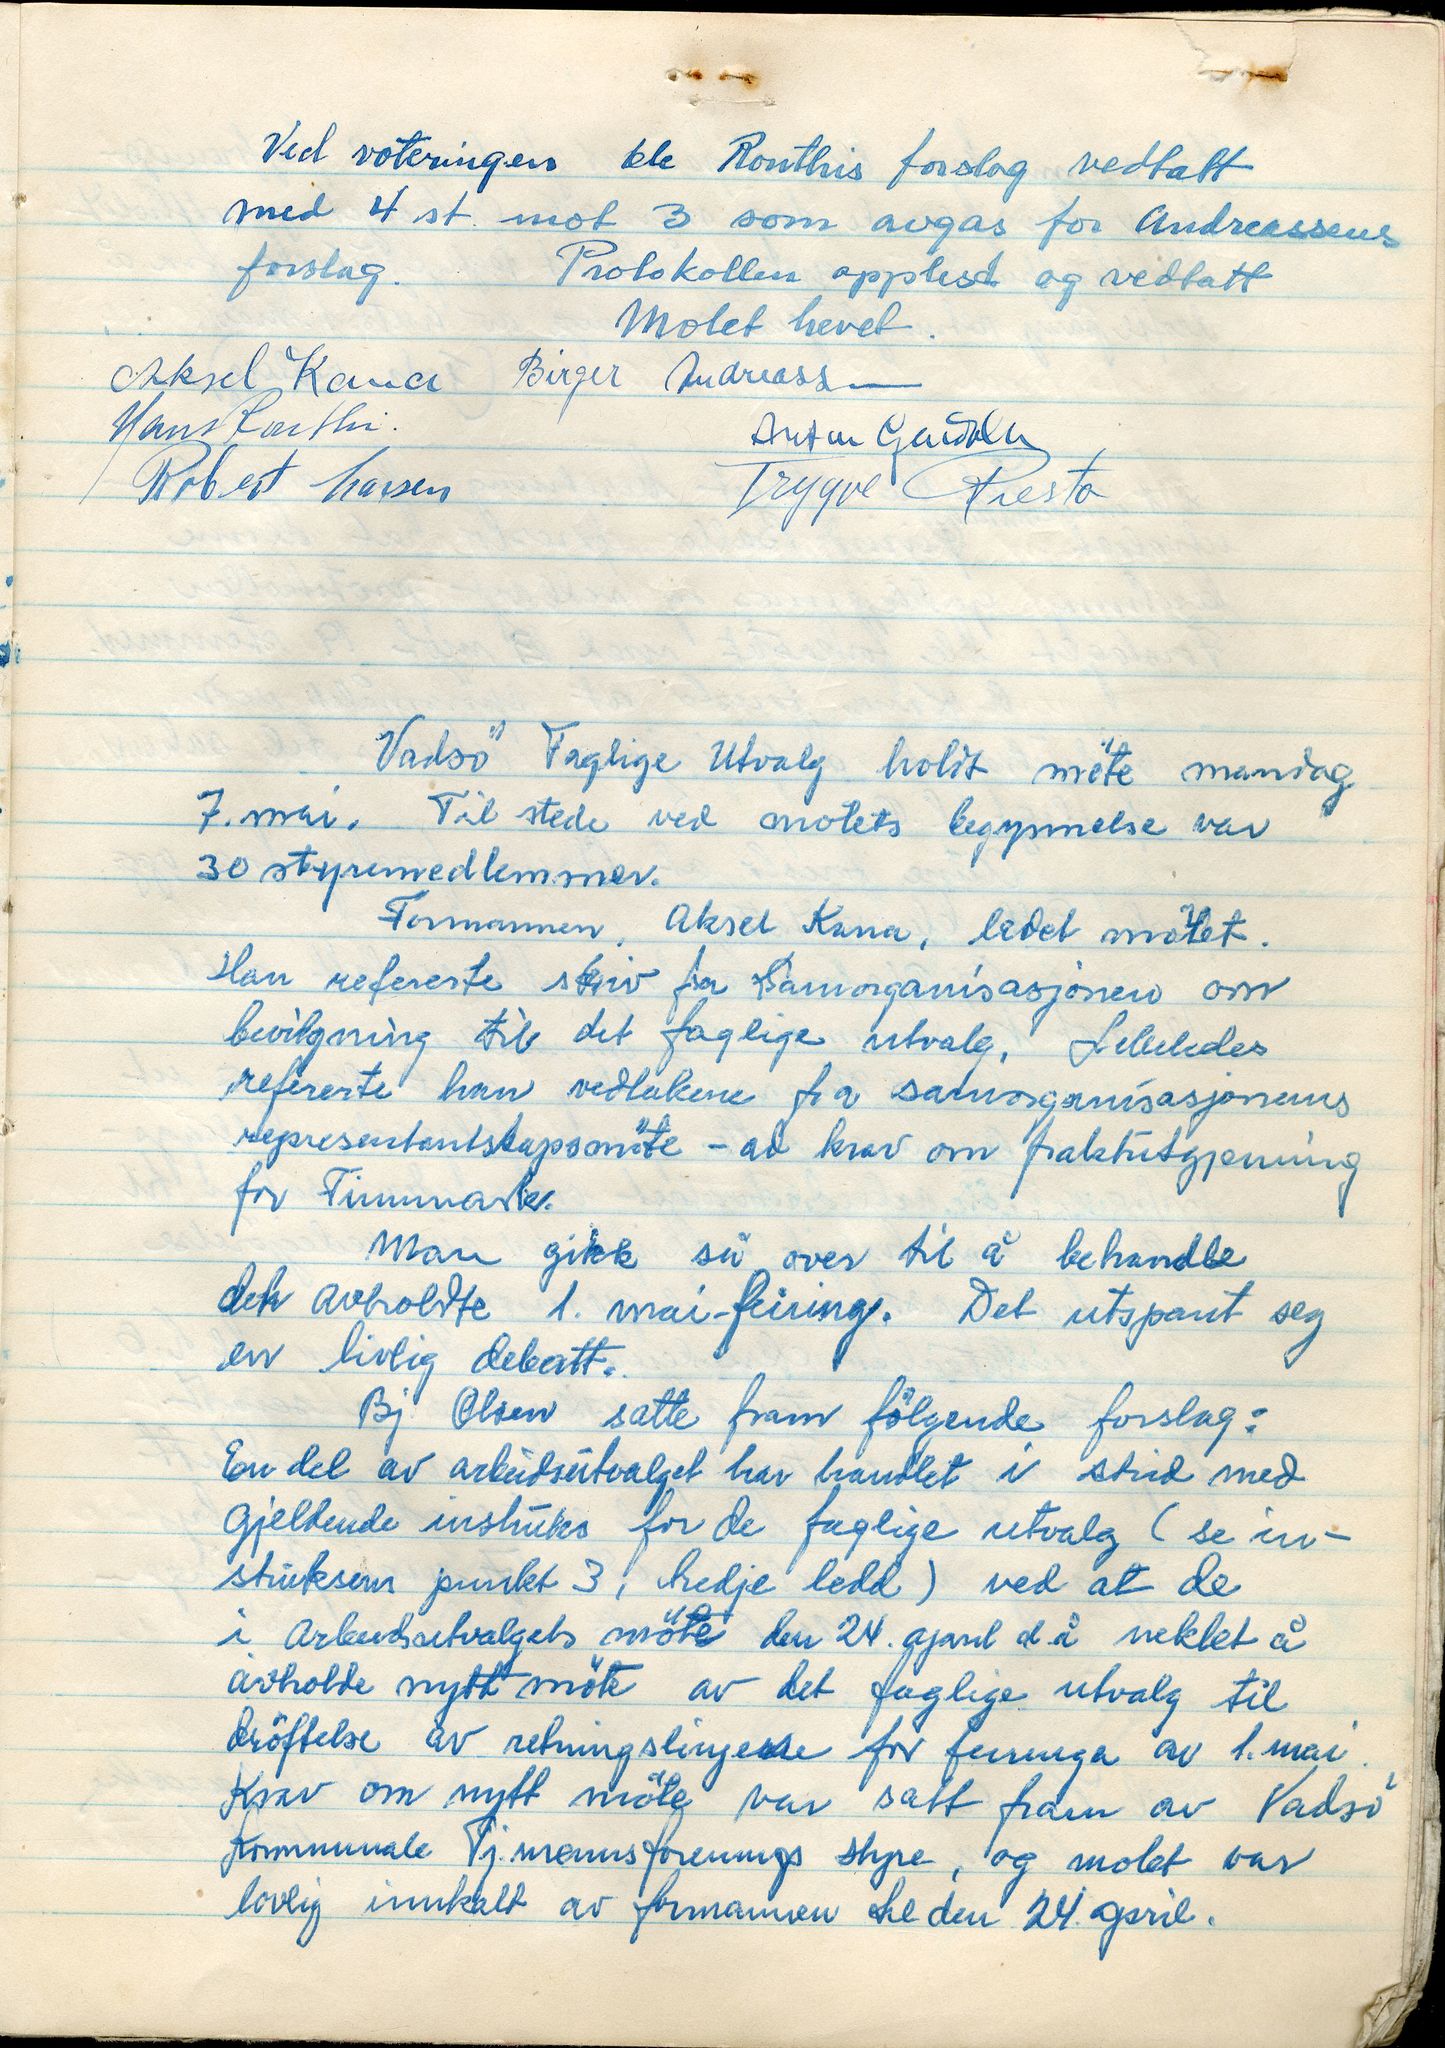 Ved voteringen ble Ronthis forslag vedtatt
med 4 st. mot 3 som avgas for Andreassens
forslag. Protokollen opplest og vedtatt
Motet hevet.
Aksel Kana Birger Andreass
Hans Ronthi.
Robert Larsen Trygve Presta
Vadsö Faglige Utvalg holdt möte mandag
7. mai. Til stede ved motets begynnelse var
30 styremedlemmer.
Formannen, Aksel Kana, ledet mötet.
Han refererte skriv fra Samorganisasjonen om
bevilgning til det faglige utvalg. Likeledes
refererte han vedtakene fra samorganisasjonens
representantskapsmöte - ad krav om fraktutgjevning
for Finnmark.
Man gikk så over til å behandle
den avholdte 1. mai-feiring. Det utspant seg
en livlig debatt.
Bj Olsen satte fram fölgende forslag:
En del av arbeidsutvalget har handlet i strid med
gjeldende instruks for de faglige utvalg (se in-
struksens punkt 3, tredje ledd) ved at de
i Arbeidsutvalgets möte den 24. april d å nektet å
avholde nytt möte av det faglige utvalg til
dröftelse av retningslinjene for feiringa av 1. mai.
Krav om nytt möte var satt fram av Vadsö
Kommunale Tj.mannsforenings styre, og motet var
lovlig innkalt av formannen til den 24. april.